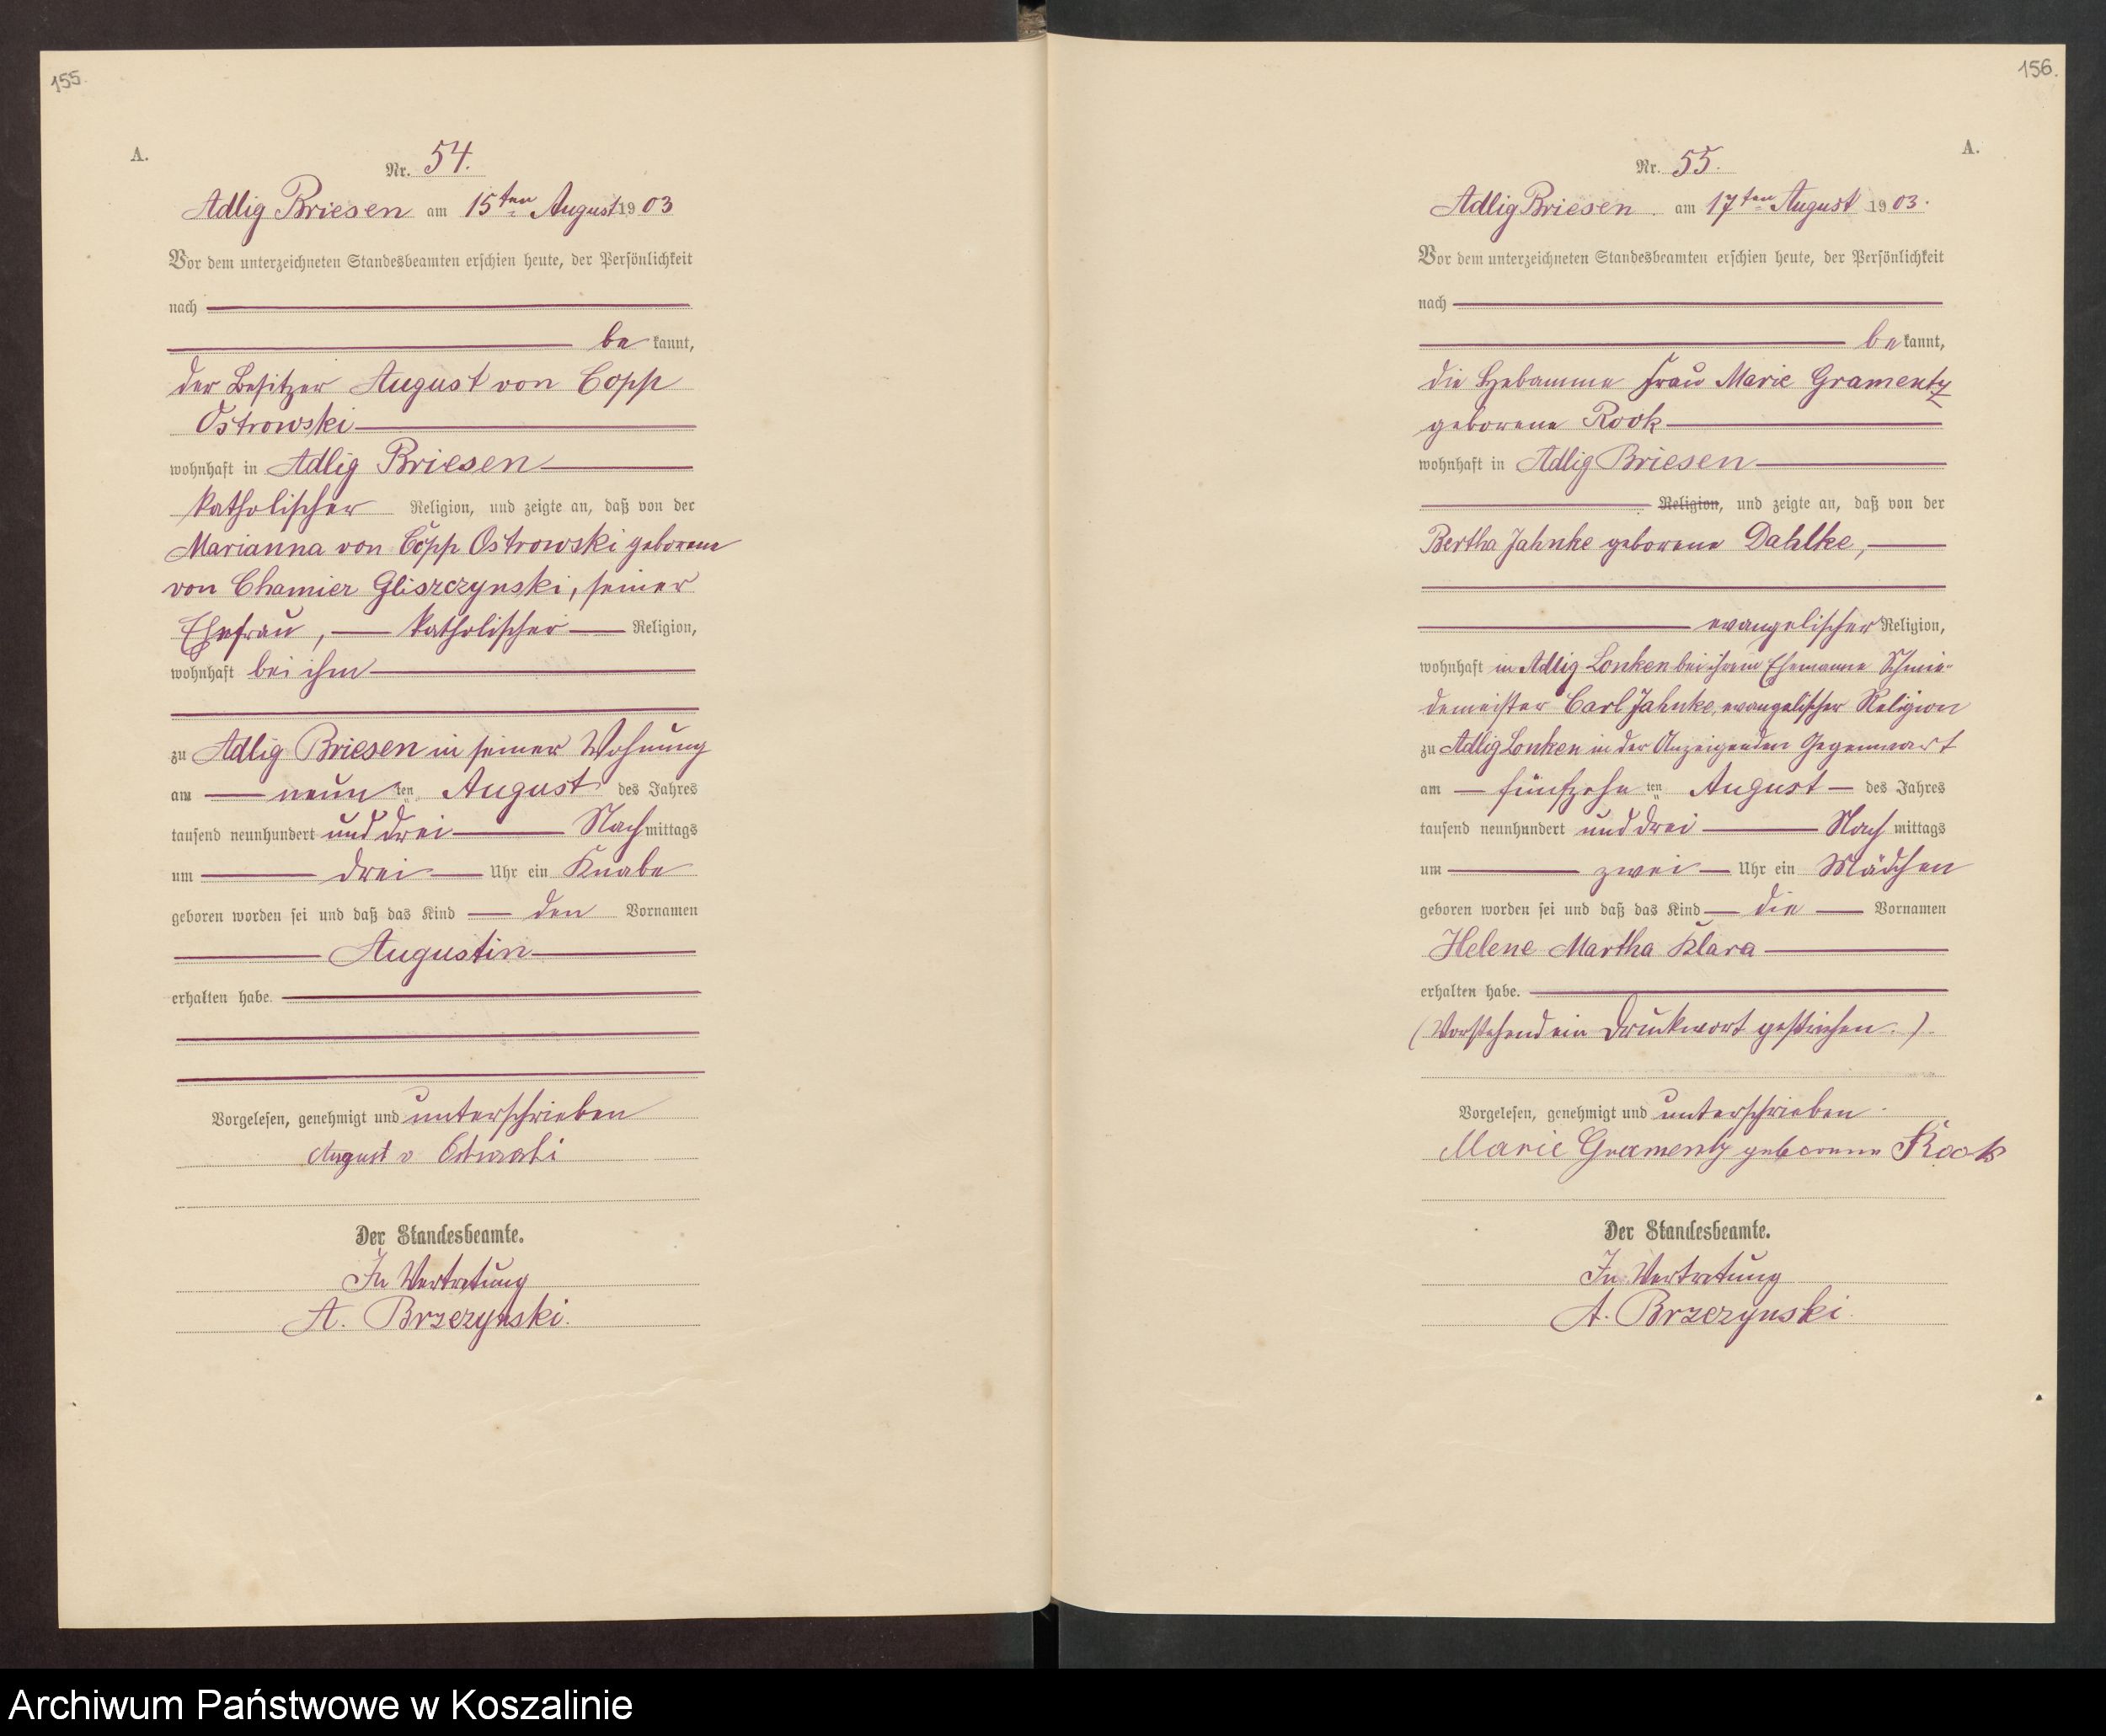 155.
A.
Nr. 54.
Adlig Briesen am 15ten August 1903
Vor dem unterzeichneten Standesbeamten erschien heute, der Persönlichkeit
nach
be kannt,
der Besitzer August von Copp
Ostrowski
wohnhaft in Adlig Briesen
katholischer Religion, und zeigte an, daß von der
Marianna von Copp Ostrowski geborene
von Chamier Gliszczynski, seiner
Ehefrau, katholischer Religion,
wohnhaft bei ihm
zu Adlig Briesen in seiner Wohnung
am neun ten August des Jahres
tausend neunhundert und drei Nach mittags
um drei Uhr ein Knabe
geboren worden sei und daß das Kind den Vornamen
Augustin
erhalten habe.
Vorgelesen, genehmigt und unterschrieben
August v
Der Standesbeamte.
In Vertretung
A. Brzezynski.
156.
A.
Nr. 55.
Adlig Briesen am 17ten August 1903.
Vor dem unterzeichneten Standesbeamten erschien heute, der Persönlichkeit
nach
be kannt,
die Hebamme Frau Marie Gramentz
geborene Rook
wohnhaft in Adlig Briesen
Religion, und zeigte an, daß von der
Bertha Jahnke geborene Dahlke,
evangelischer Religion,
wohnhaft in Adlig Lonken bei ihrem Ehemanne Schmie-
demeister Carl Jahnke, evangelischer Religion
zu Adlig Lonken in der Anzeigenden Gegenwart
am fünfzehn ten August des Jahres
tausend neunhundert und drei Nach mittags
um zwei Uhr ein Mädchen
geboren worden sei und daß das Kind die Vornamen
Helene Martha Klara
erhalten habe.
(Vorstehend ein Druckwort gestrichen.).
Vorgelesen, genehmigt und unterschrieben.
Marie Gramentz geborene Rook
Der Standesbeamte.
In Vertretung
A. Brzezynski.
Archiwum Państwowe w Koszalinie